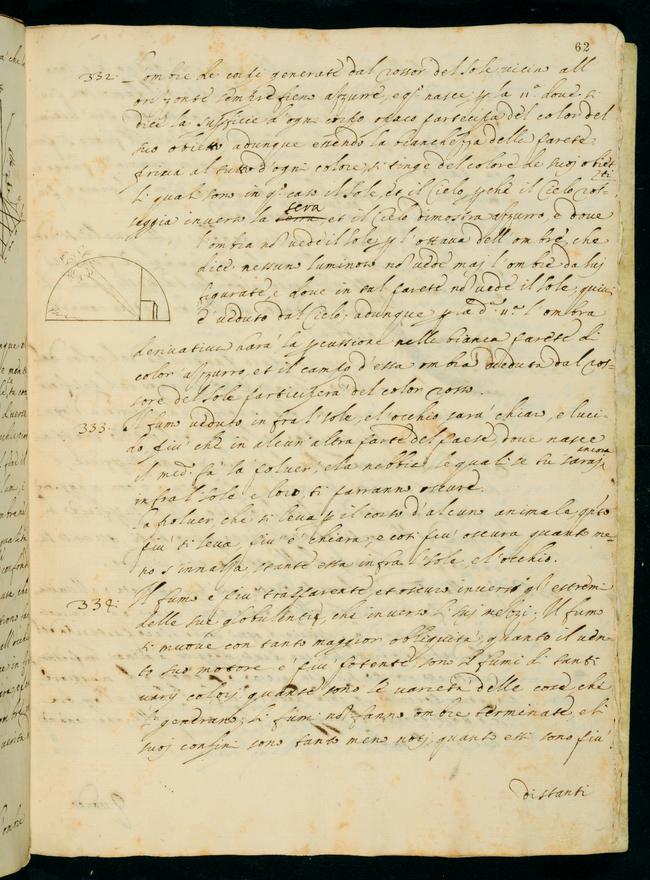 62
332. L'ombre de corpi generate dal rossor del sole vicin all
orizonte sempre fieno azzurre, e q.o nasce p la 11.a dove si
dice la superficie d'ogni corpo opaco partecipa del color del
suo obietto adunque essendo la bianchezza della parete
priva al tutto d'ogni colore, si tinge del colore de suoj obiet
ti
li quali sono in q.o caso il sole, et il Cielo, p che il Cielo ros-
seggia inverso la terra sera et il Cielo dimostra azzurro, e dove
l'ombra nō vede il sole p l'ottava dell ombre, che
dice nessun luminoso nō vede maj l'ombre da luj
figurate, e dove in tal parete nō vede il sole, quivi
è veduto dal Cielo; adunque p la d.a 11.a l'ombra
derivativa harà la pcussione nella bianca parete di
color azzurro, et il campo d'essa ombra veduta dal ros-
sore del sole participerà del color rosso.
333. Il fumo veduto infra l' sole, e l'occhio sarà chiaro, e luci-
do più che in alcun' altra parte del paese, dove nasce
il med.o fà la polver, e la nebbia, le quali se tu saraj ancora
infra l' sole e loro, ti parranno oscure.
La polver che si leva p il corso d'alcuno animale q.nto
più si leva, più è chiara, e così più oscura quanto me-
no s'innalza, stante essa infra l' sole, e l'occhio.
334. Il fumo è più trasparente, et oscuro inverso gl' estremi
delle sue globulentie, che inverso li suoj mezzi; Il fumo
si muove con tanto maggior obliquità, quanto il ven-
to suo motore è più potente, sono li fumi di tanti
varij colorj, quante sono le varietà delle cose che
li gendrano; Li fumi nō fanno ombre terminate, e li
suoj confini sono tanto meno notj, quanto essi sono più
distanti